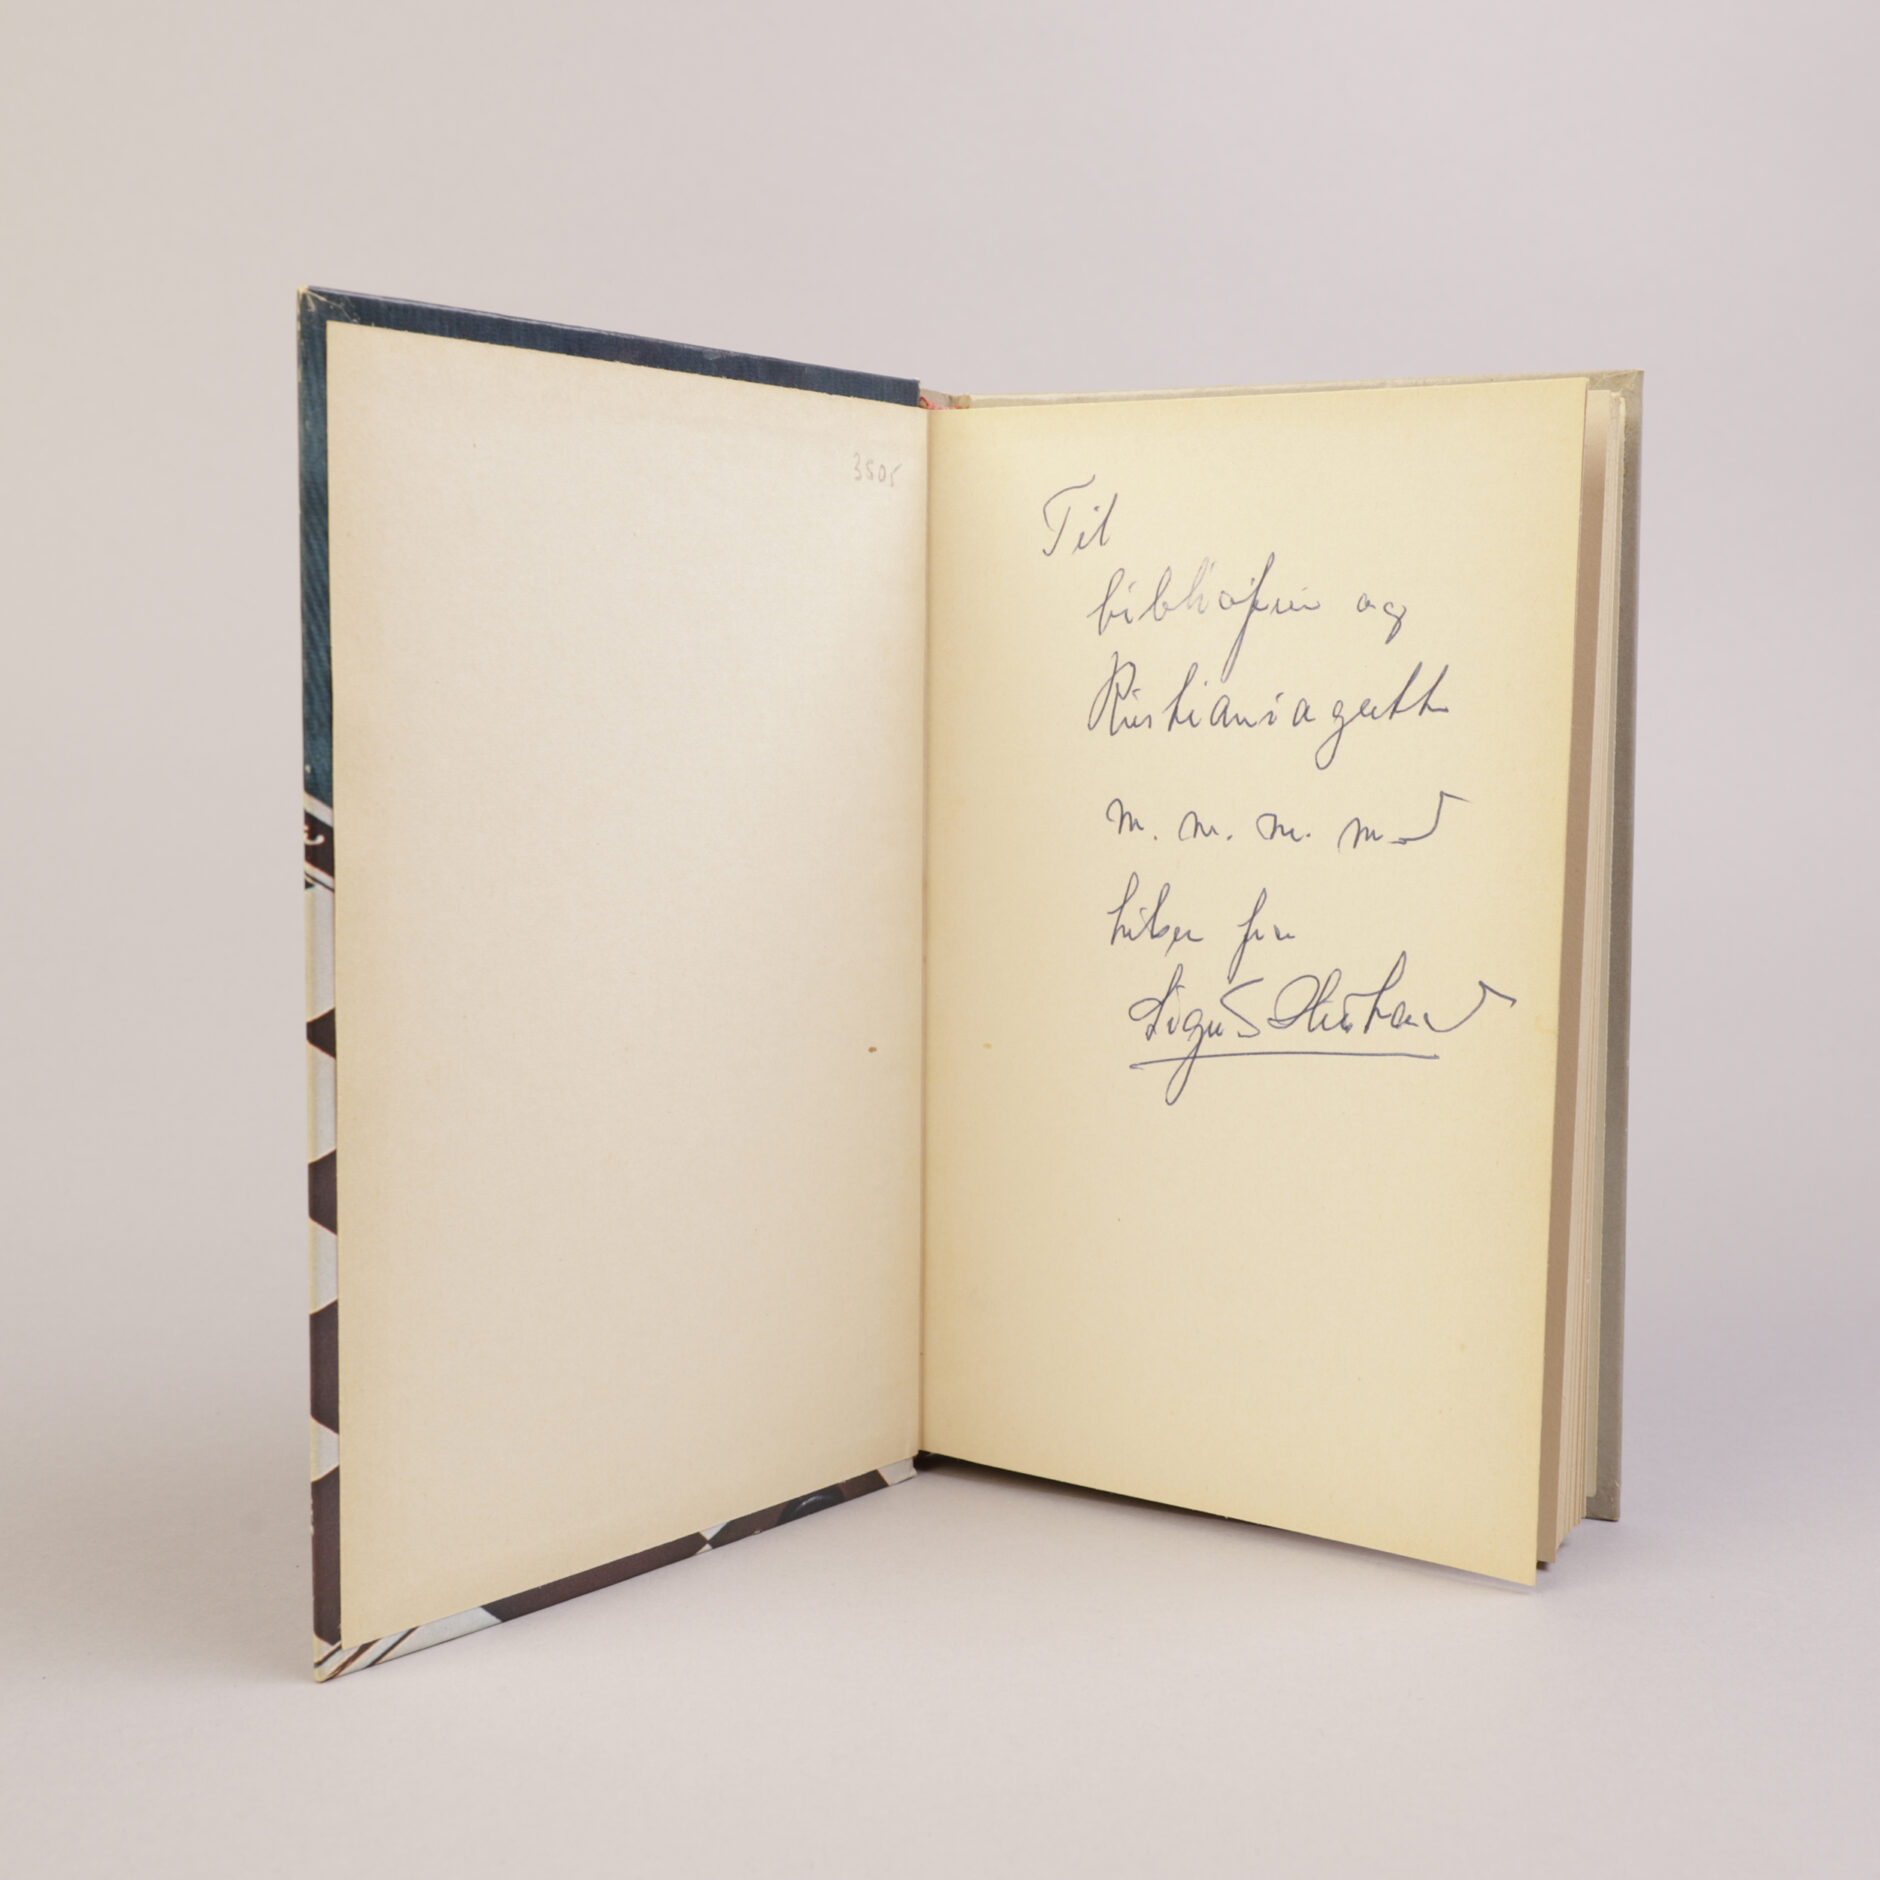 3505
Til
bibliofilen og
Kristianiagutten
m. m. m. med
hilsen fra
Sigurd